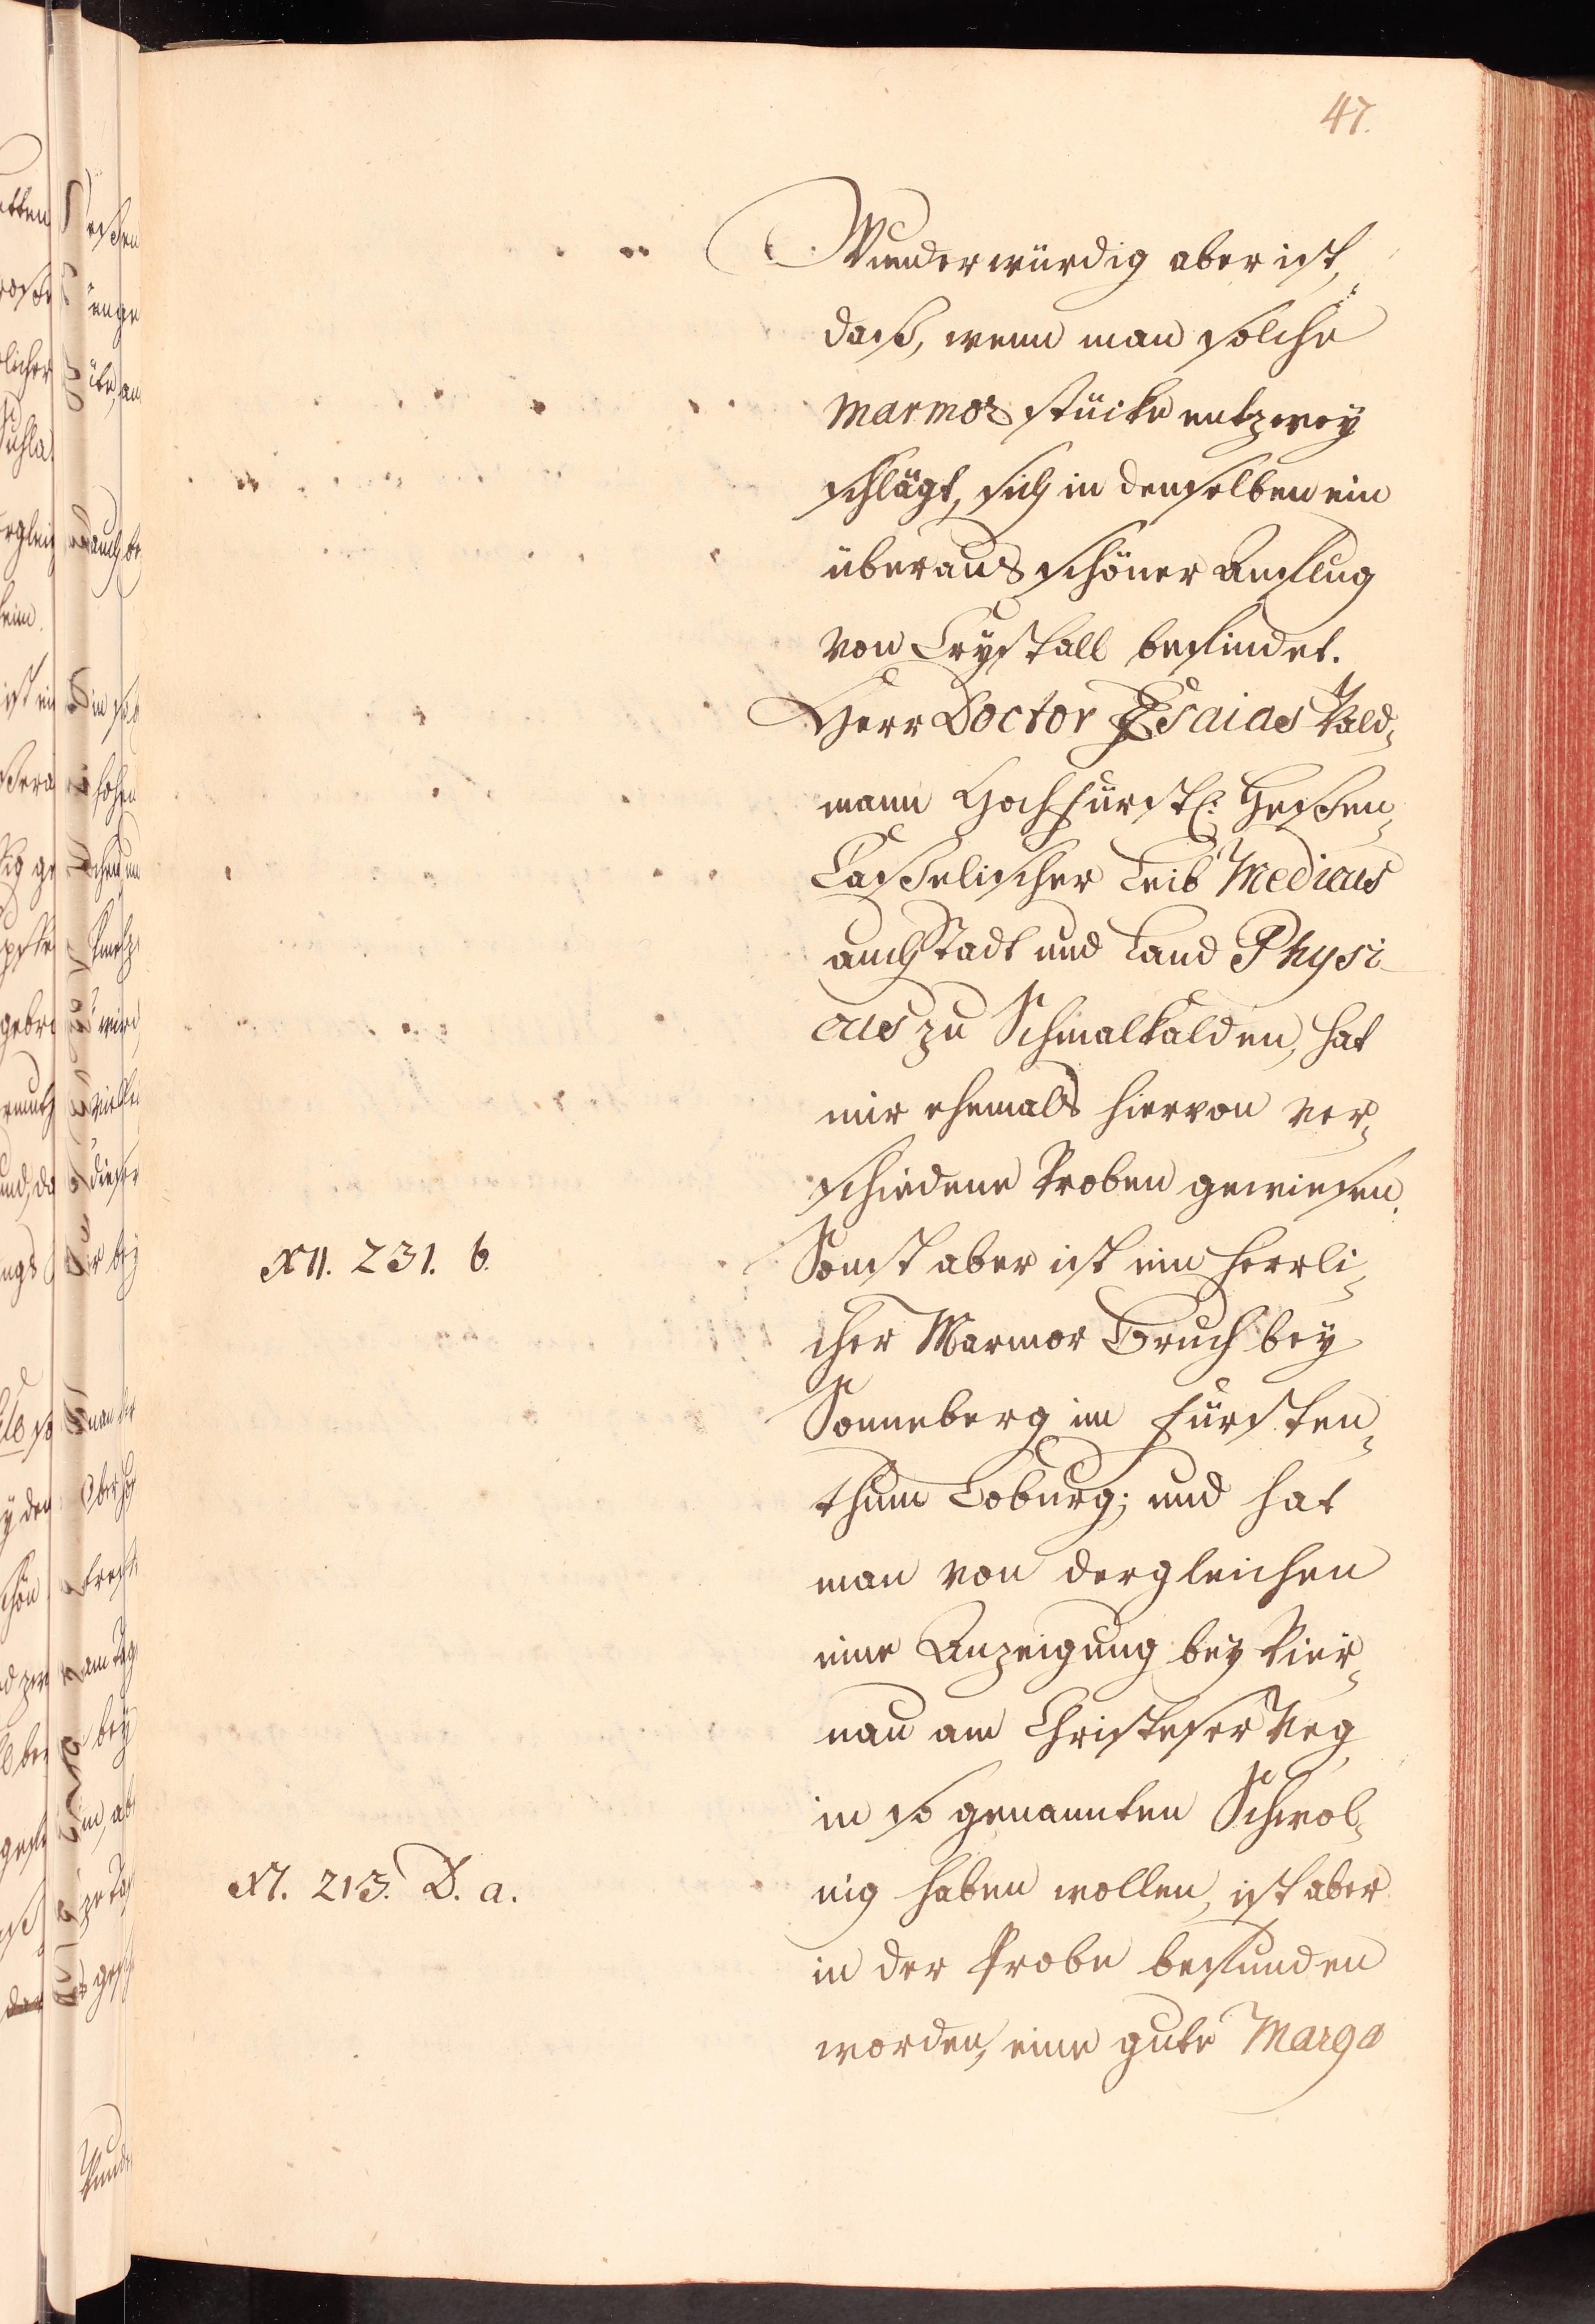 47.
Wunderwürdig aber ist,
daß, wenn man solche
Marmor stücke entzwey
schlägt, sich in denselben ein
überaus schöner Anflug
von Crystall befindet.
Herr Doctor Esaias Vald¬
mann Hochfürstl: Heßen¬
Casselischer Leib Medicus
auch Stadt und Land Physi
cus zu Schmalkalden, hat
mir ehemals hiervon ver¬
schiedene Proben gewiesen.
XII. 231. b.
Sonst aber ist ein herrli¬
cher Marmor Bruch bey
Sonneberg im Fürsten¬
thum Coburg; und hat
man von dergleichen
eine Anzeigung bey Vier¬
nau am Christeser Weg
im so genannten Schwol¬
XI. 213. D. a.
nig haben wollen, ist aber
in der Probe befunden
worden, eine gute Marga